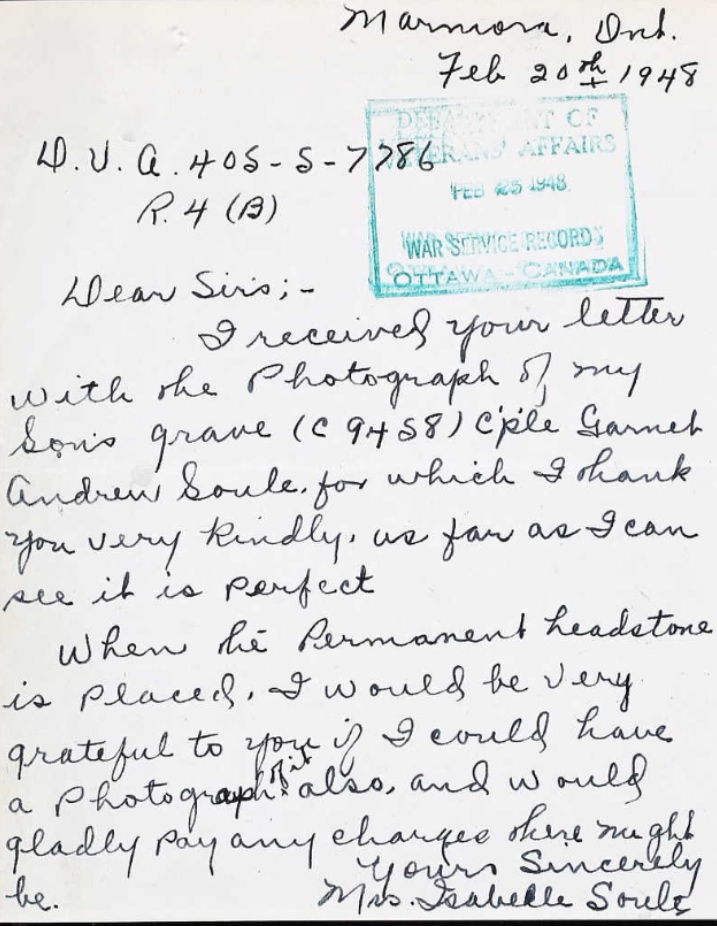 Marmora, Ont.
Feb 20th 1948
DEPARTMENT OF
VETERANS' AFFAIRS
FEB 25 1948
WAR SERVICE RECORDS
OTTAWA - CANADA
D.V.A. 405-S-7786
R.4 (B)
Dear Sirs;-
I received your letter
with the Photograph of my
Son's grave (C 9458) C'ple Garnet
Andrew Soule. for which I thank
you very kindly. as far as I can
see it is perfect
When the Permanent headstone
is placed. I would be very
grateful to you if I could have
a photograph of it also, and would
gladly pay any charges there might
be.
Yours Sincerely
Mrs. Isabelle Soule